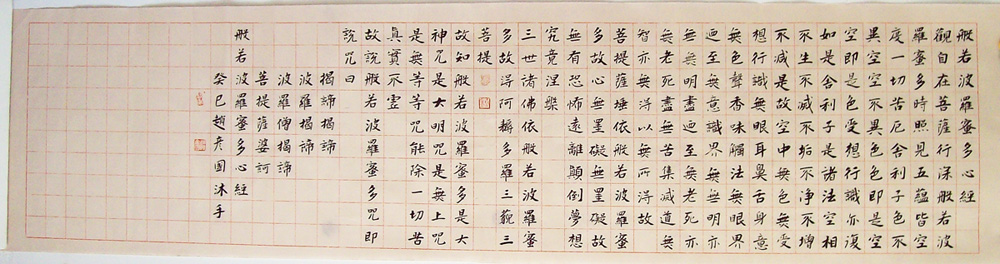 般若波羅蜜多心經
觀自在菩薩行深般若波
羅蜜多時照見五蘊皆空
度一切苦厄舍利子色不
異空空不異色色即是空
空即是色受想行識亦復
如是舍利子是諸法空相
不生不滅不垢不淨不增
不減是故空中無色無受
想行識無眼耳鼻舌身意
無色聲香味觸法無眼界
迺至無意識界無無明亦
無無明盡迺至無老死亦
無老死盡無苦集滅道無
智亦無得以無所得故
菩提薩埵依般若波羅蜜
多故心無罣礙無罣礙故
無有恐怖遠離顛倒夢想
究竟涅槃
三世諸佛依般若波羅蜜
多故得阿耨多羅三藐三
菩提
故知般若波羅蜜多是大
神咒是大明咒是無上咒
是無等等咒能除一切苦
真實不虛
故說般若波羅蜜多咒即
說咒曰
揭諦揭諦
波羅揭諦
波羅僧揭諦
菩提薩婆訶
般若波羅蜜多心經
癸巳趙彥國沐手